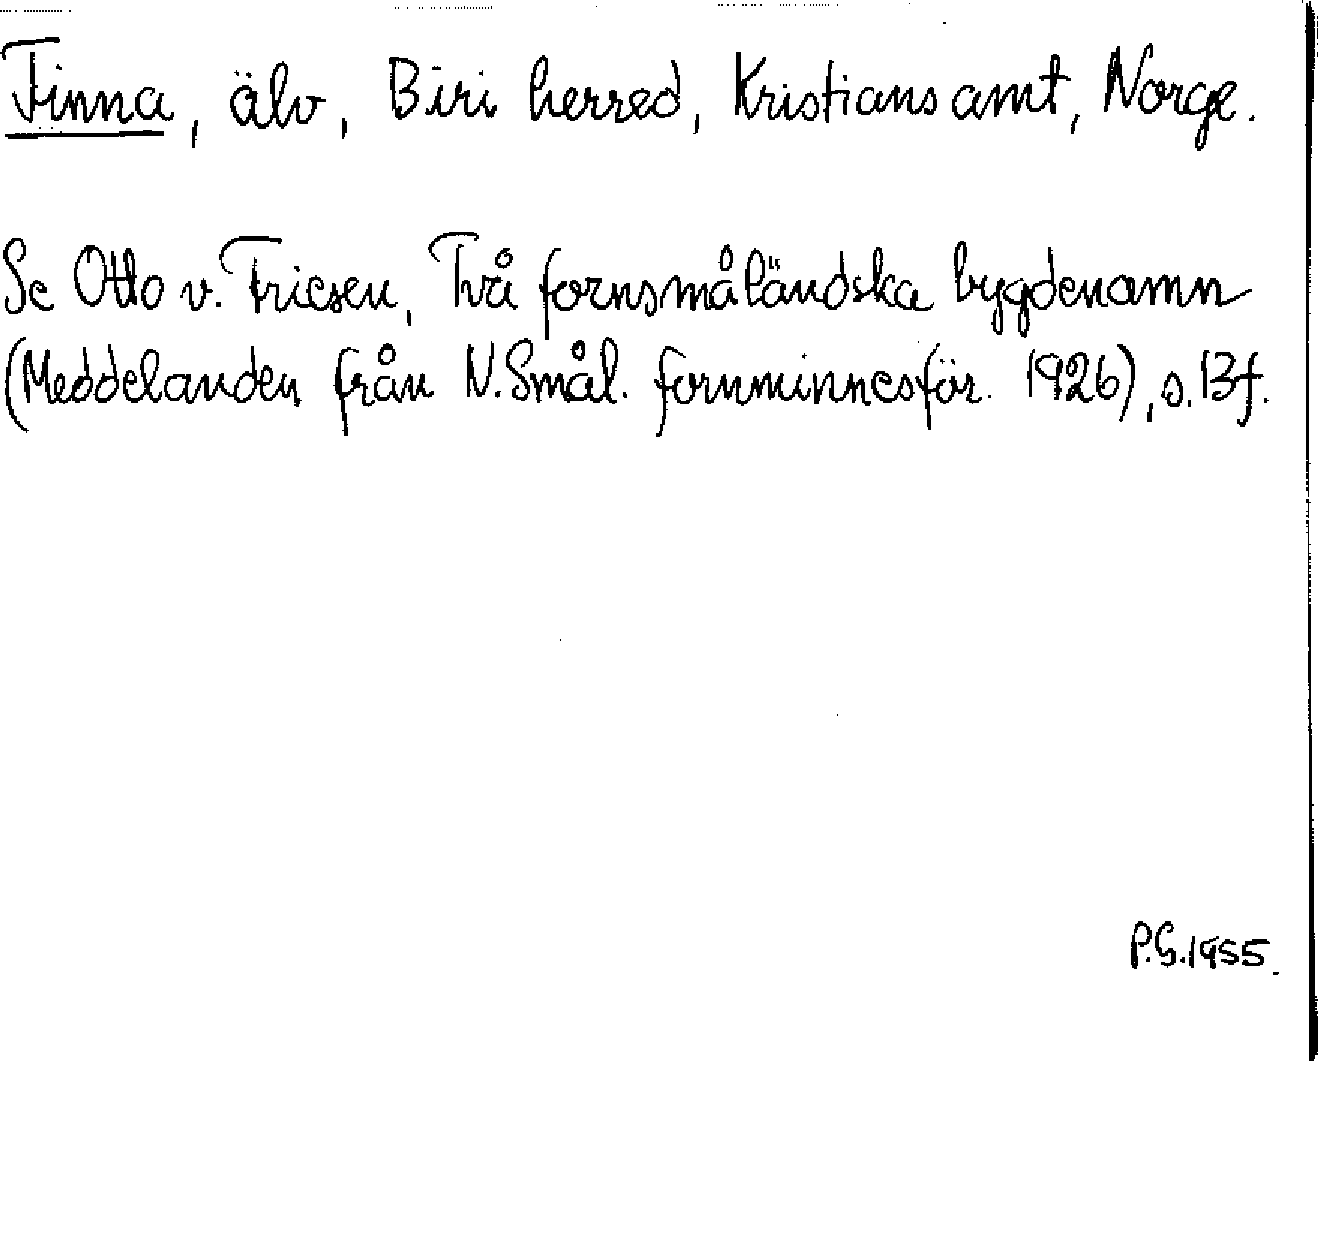 Finna, älv, Biri herred, Kristians amt, Norge.
Se Otto v. Friesen, Två fornsmåländska bygdenamn
(Meddelanden från N. Smål. fornminnesför. 1926), s. 13 f.
P.G. 1955.